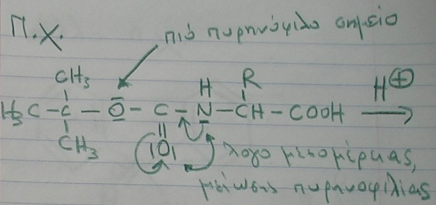 Π.χ.
πιό πυρηνόφιλο σημείο
CH₃ H R
H₃C - C - O - C - N - CH - COOH H⊕
CH₃ |O| λόγο μεσομέρειας,
μείωσης πυρηνοφιλίας